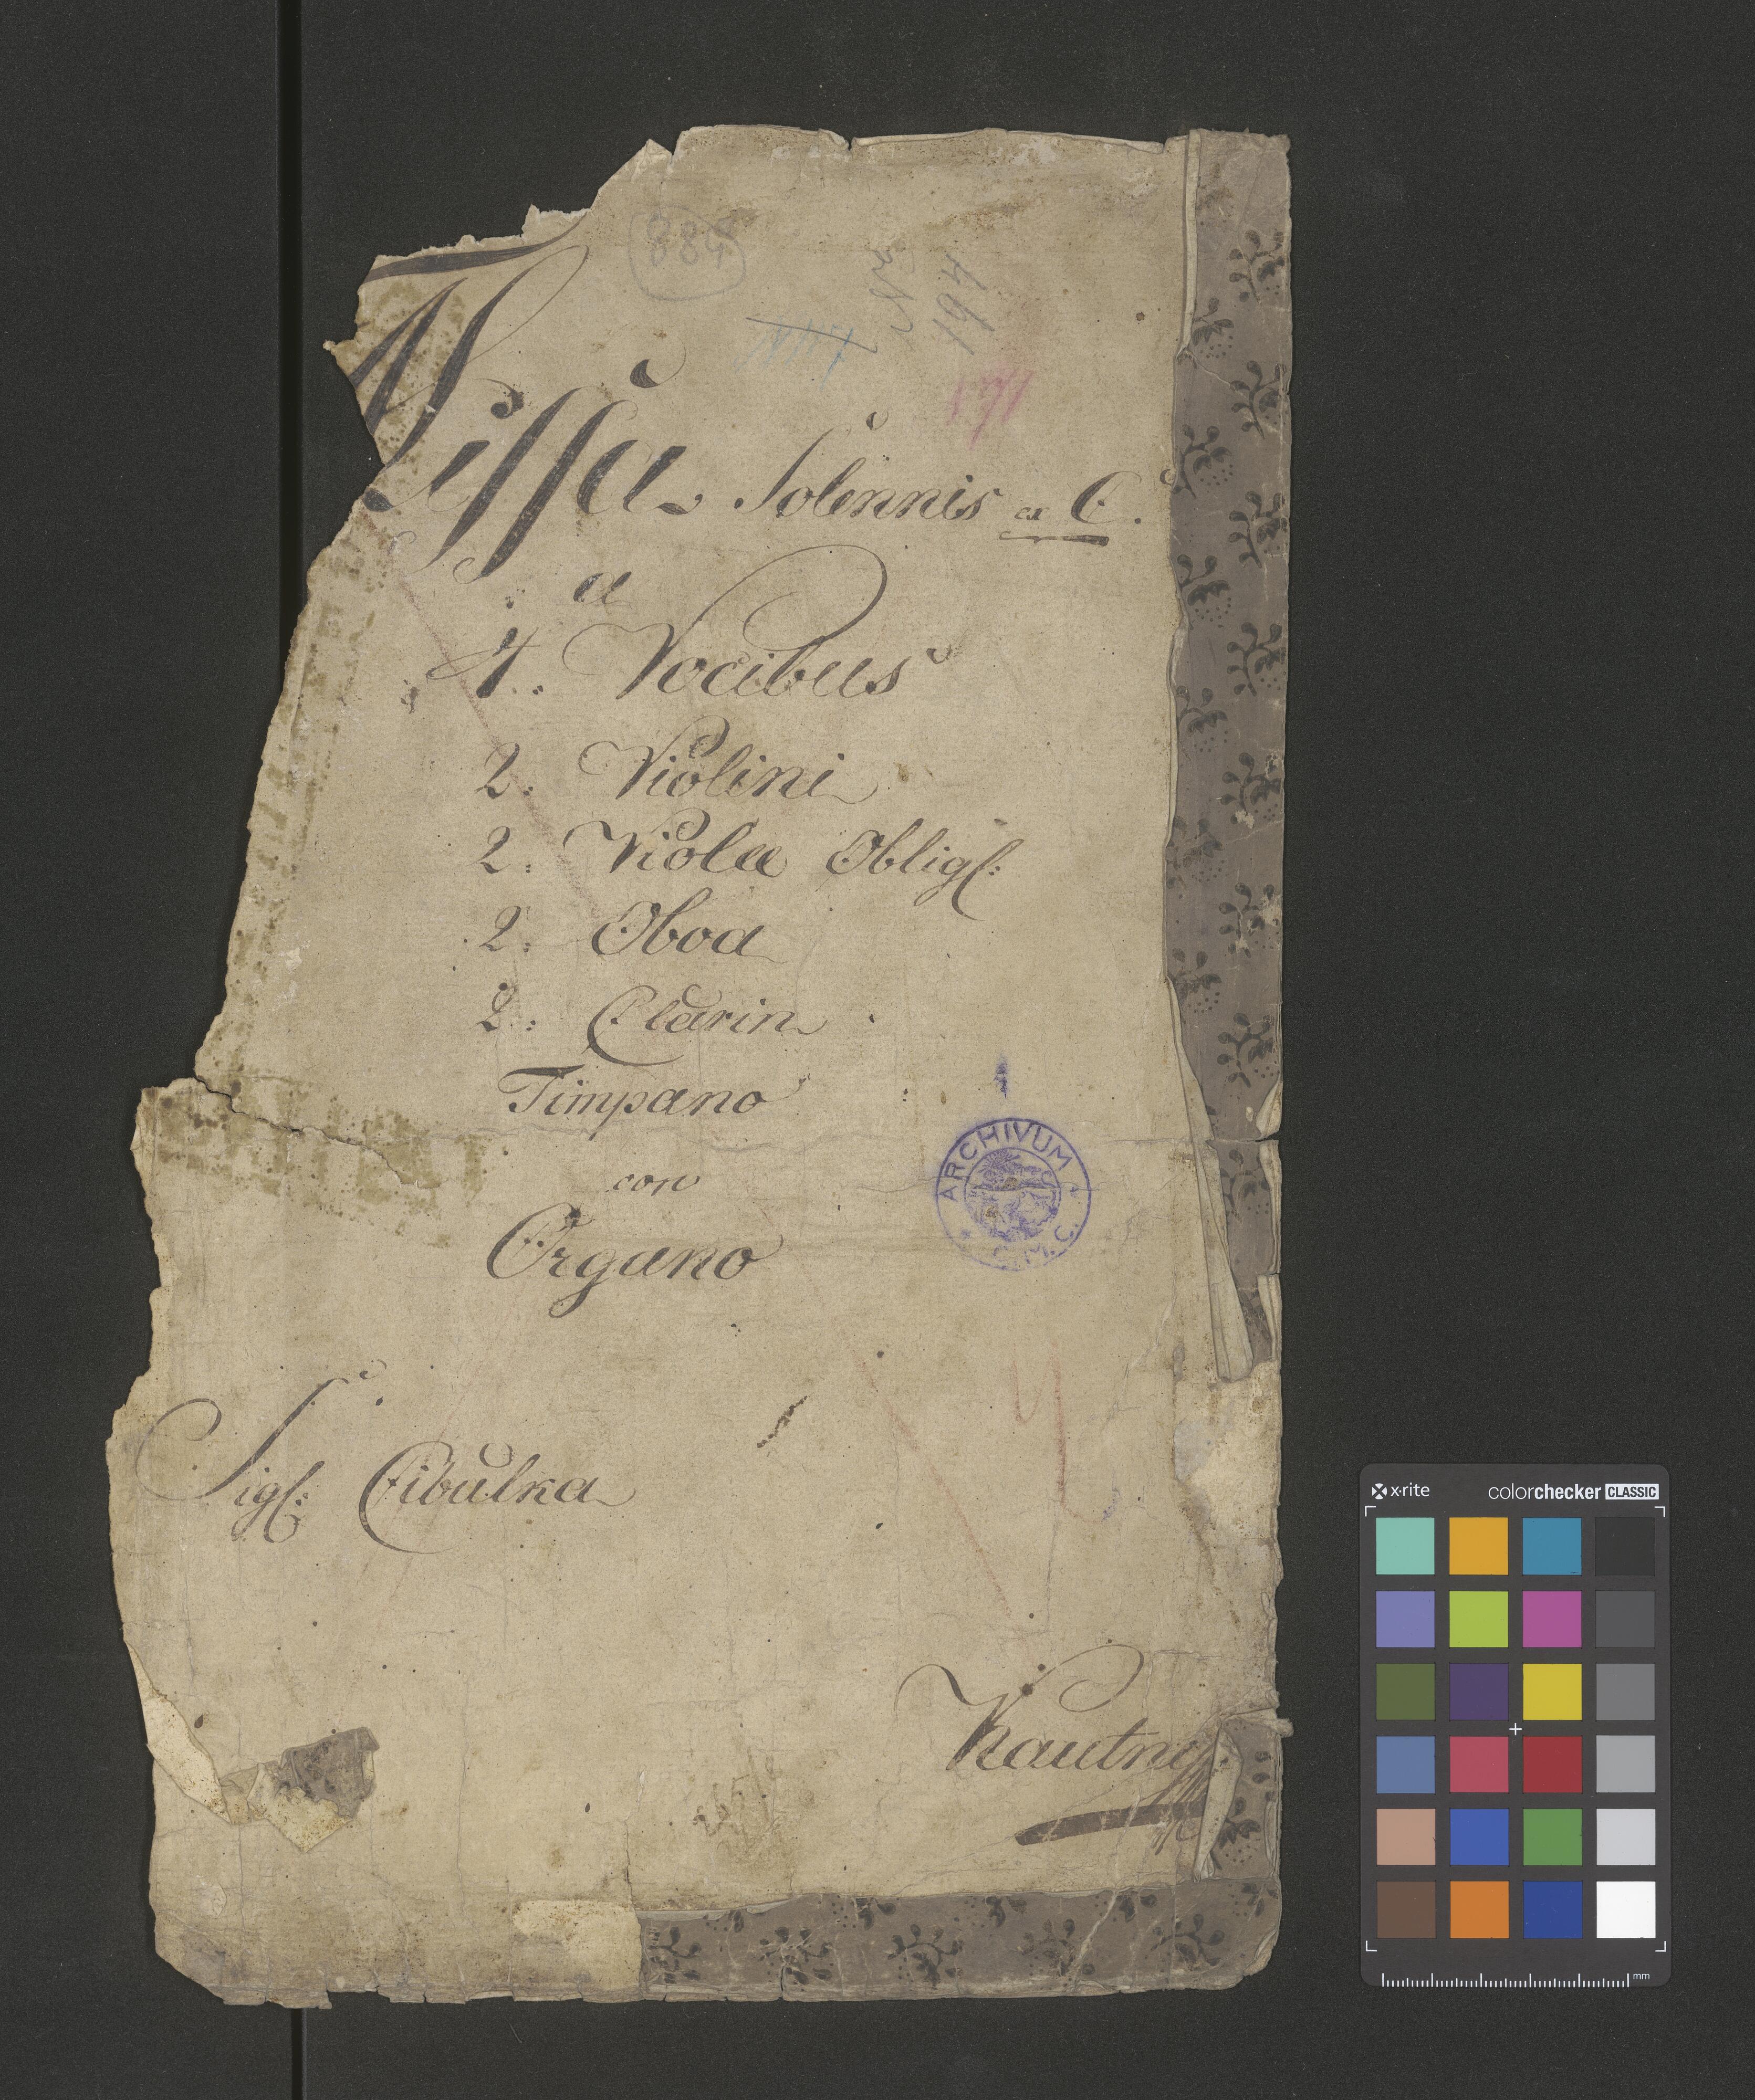 884
194
Missa Solennis ex C.
a
4. Vocibus
2. Violini
2. Violae Oblig:
2. Oboa
2. Clarin
Timpano
con
Organo
ARCHIVUM
Sig: Cibulka
Kautne
x-rite colorchecker CLASSIC
mm